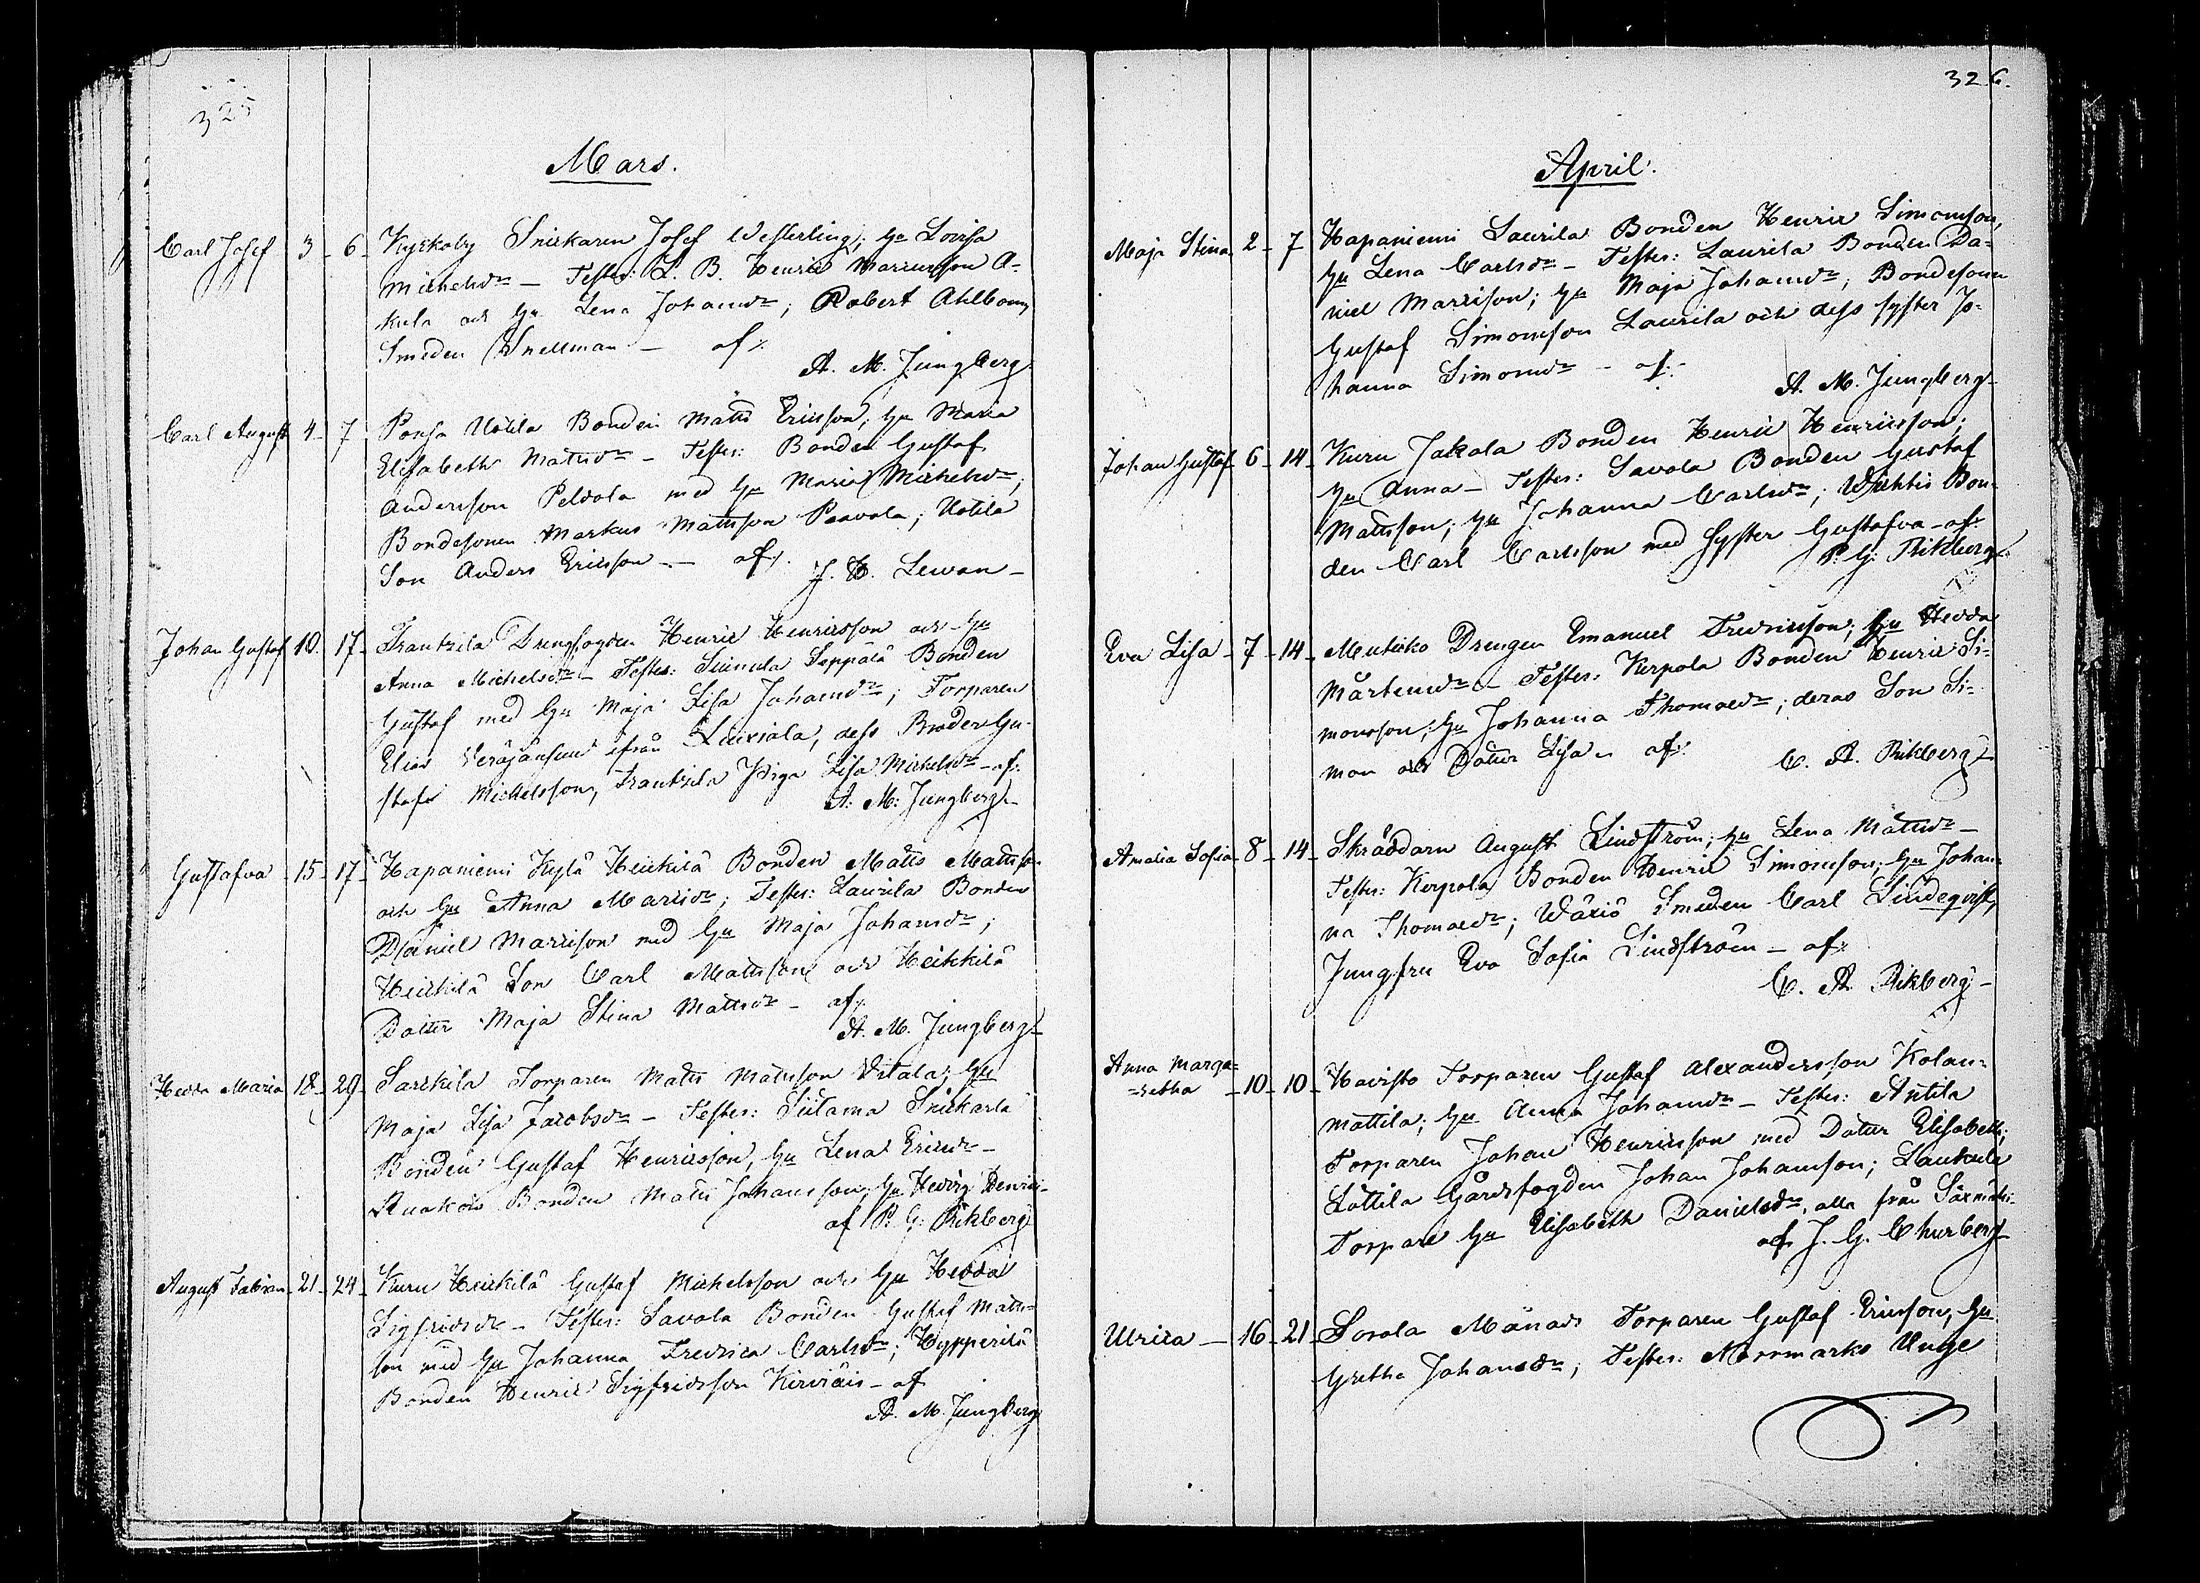 325
Mars.
Carl Josef 3 - 6 - Kyrkoby Snickaren Josef Westerling; hu Lovisa
Michelsdr - Testes: L. B. Henric Maricusson A-
kula och hu Lena Johansdr; Robert Ahlbom,
Smeden Snellman - af:
A. M. Jungberg
Carl August 4 - 7 Ponsa Uotila Bonden Matts Ericsson, hu Maria
Elisabeth Mattsdr - Testes: Bonden Gustaf
Andersson Peldola med hu Maria Michelsdr;
Bondesonen Markus Mattsson Paavola; Uotila
Son Anders Ericsson - af:
J. H. Lewan -
Johan Gustaf 10 - 17 - Frantzila Drengfogden Henric Henricsson och hu
Anna Michelsdr - Testes: Seppälä Bonden
Gustaf med hu Maja Lisa Johansdr; Torparen
Elias ifrån, dess Broder Gu-
staf Michelsson, Frantzila Piga Lisa Michelsdr - af:
A. M: Jungberg -
Gustafva - 15 - 17 - Hapaniemi Kylä Heickilä Bonden Matts Mattsson
och hu Anna Maricsdr; Testes: Laurila Bonden
Daniel Maricson med hu Maja Johansdr;
Heickilä Son Carl Mattsson och Heikkilä
Dotter Maja Stina Mattsdr - af:
A. M. Jungberg -
Hedda Maria 18 - 29 - Sarckila Torparen Matts Mattsson Vitala; hu
Maja Lisa Jacobsdr - Testes: Siitama Snickarla
Bonden Gustaf Henricsson, hu Lena Ericsdr -
Bonden Matts Johansson; hu Hedvig Henrics-
af P. G. Rikberg
August Fabian - 21 - 24 - Kuru Heickilä Gustaf Michelsson och hu Hedda
Sigfridsdr - Testes: Savola Bonden Gustaf Matts-
son med hu Johanna Fredrica Carlsdr; Hypperilä
Bonden Henric Sigfridsson - af
A. M. Jungberg
326.
April.
Maja Stina 2 - 7 Hapaniemi Laurila Bonden Henric Simonsson,
hu Lena Carlsdr - Testes: Laurila Bonden Da-
niel Marrison; hu Maja Johansdr; Bondesonen
Gustaf Simonsson Laurila och dess syster Jo-
hanna Simonsdr - af:
A. M. Jungberg -
Johan Gustaf 6 - 14 - Kuru Jakola Bonden Henric Henricsson;
hu Anna - Testes: Savola Bonden Gustaf
Mattsson; hu Johanna Carlsdr; Wichtis Bon-
den Carl Carlsson med syster Gustafva - af:
P. G. Rikberg.
Eva Lisa - 7 - 14 - Muticko Drengen Emanuel Fredricsson; hu Hedda
Mårtensdr - Testes: Kerpola Bonden Henric Si-
monsson; hu Johanna Thomasdr; deras Son Si-
mon och Dotter Lisa - af:
C. A. Rikberg -
Amalia Sofia - 8 - 14 - Skräddarn August Lindström; hu Lena Mattsdr -
Testes: Kerpola Bonden Henric Simonsson; hu Johan-
na Thomasdr; Smeden Carl Lindeqvist,
Jungfru Eva Sofia Lindström - af:
C. A. Rikberg -
Anna Marga-
-retha - 10 - 10 - Havisto Torparen Gustaf Alexandersson Kolan-
mattila; hu Anna Johansdr - Testes: Antila
Torparen Johan Henricsson med Dotter Elisabeth;
Lottila Gårdsfogden Johan Johansson; Laukula
Torpare hu Elisabeth Danielsdr, alla från Säxmäki.
af J. G. Churberg -
Ulrica - 16 - 21 - Sorola Mänars Torparen Gustaf Ericsson, hu
Gretha Johansdr; Testes: Norrmarks Unge